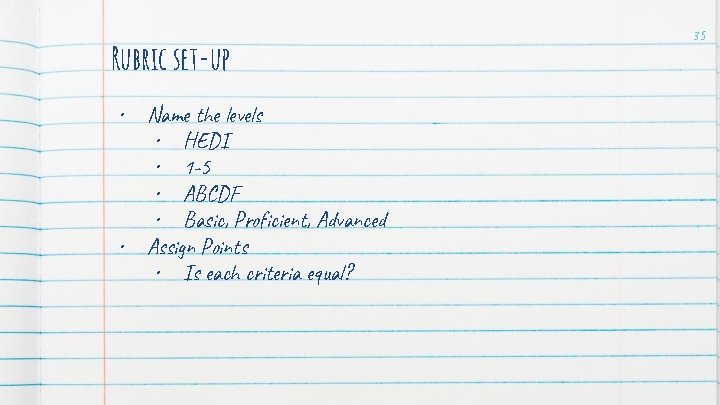 35
Rubric set-up
• Name the levels
• HEDI
• 1-5
• ABCDF
• Basic, Proficient, Advanced
• Assign Points
• Is each criteria equal?